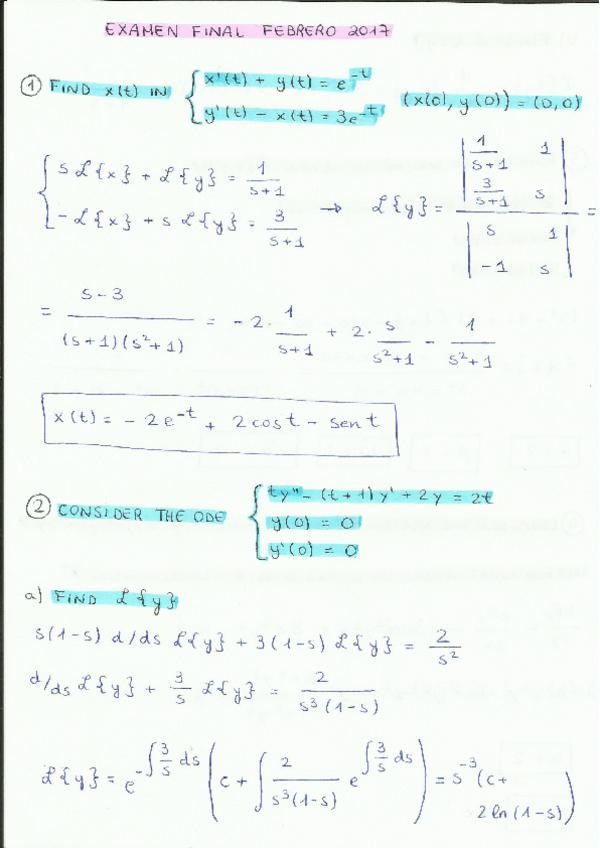 EXAMEN FINAL FEBRERO 2017
① FIND x(t) IN { x'(t) + y(t) = e^-t
y'(t) - x(t) = 3e^-t (x(0), y(0)) = (0,0)
{ s ℒ{x} + ℒ{y} = 1/(s+1)
-ℒ{x} + s ℒ{y} = 3/(s+1) → ℒ{y} = | 1/(s+1) 1 ; 3/(s+1) s | / | s 1 ; -1 s | =
= (s-3)/((s+1)(s²+1)) = -2 · 1/(s+1) + 2 · s/(s²+1) - 1/(s²+1)
x(t) = -2e^-t + 2cost - sent
② CONSIDER THE ODE { ty'' - (t+1)y' + 2y = 2t
y(0) = 0
y'(0) = 0
a) FIND ℒ{y}
s(1-s) d/ds ℒ{y} + 3(1-s) ℒ{y} = 2/s²
d/ds ℒ{y} + 3/s ℒ{y} = 2/(s³(1-s))
ℒ{y} = e^(-∫ 3/s ds) (c + ∫ 2/(s³(1-s)) e^(∫ 3/s ds)) = s^-3 (c +
2 ln(1-s))